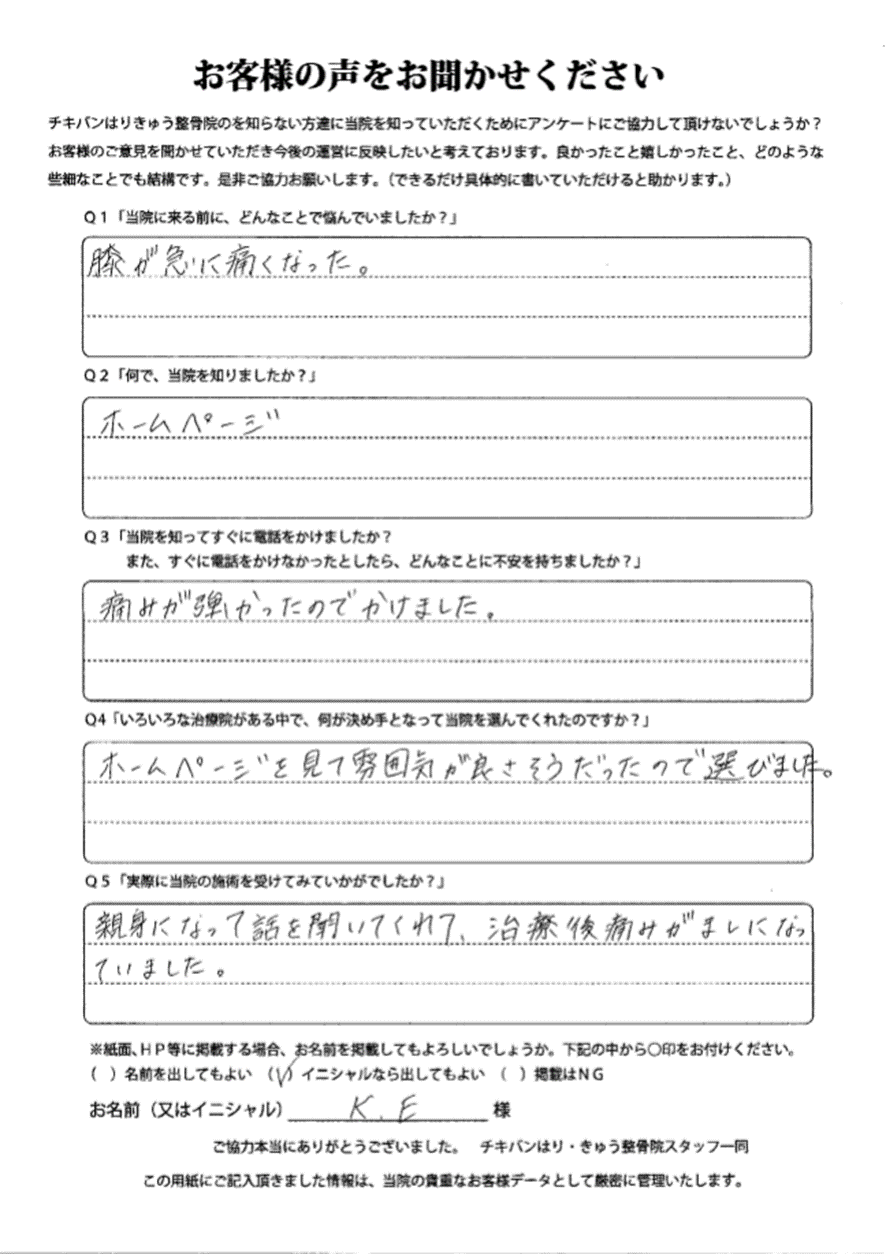 お客様の声をお聞かせください
チキバンはりきゅう整骨院のを知らない方達に当院を知っていただくためにアンケートにご協力して頂けないでしょうか？
お客様のご意見を聞かせていただき今後の運営に反映したいと考えております。良かったこと嬉しかったこと、どのような
些細なことでも結構です。是非ご協力お願いします。（できるだけ具体的に書いていただけると助かります。）
Q１「当院に来る前に、どんなことで悩んでいましたか？」
膝が急に痛くなった。
Q２「何で、当院を知りましたか？」
ホームページ
Q３「当院を知ってすぐに電話をかけましたか？
また、すぐに電話をかけなかったとしたら、どんなことに不安を持ちましたか？」
痛みが強かったのでかけました。
Q4「いろいろな治療院がある中で、何が決め手となって当院を選んでくれたのですか？」
ホームページを見て雰囲気が良さそうだったので選びました。
Q５「実際に当院の施術を受けてみていかがでしたか？」
親身になって話を聞いてくれて、治療後痛みがましになっ
ていました。
※紙面、HP等に掲載する場合、お名前を掲載してもよろしいでしょうか。下記の中から〇印をお付けください。
（ ）名前を出してもよい （✓）イニシャルなら出してもよい （ ）掲載はNG
お名前（又はイニシャル） K.E 様
ご協力本当にありがとうございました。 チキバンはり・きゅう整骨院スタッフ一同
この用紙にご記入頂きました情報は、当院の貴重なお客様データとして厳密に管理いたします。